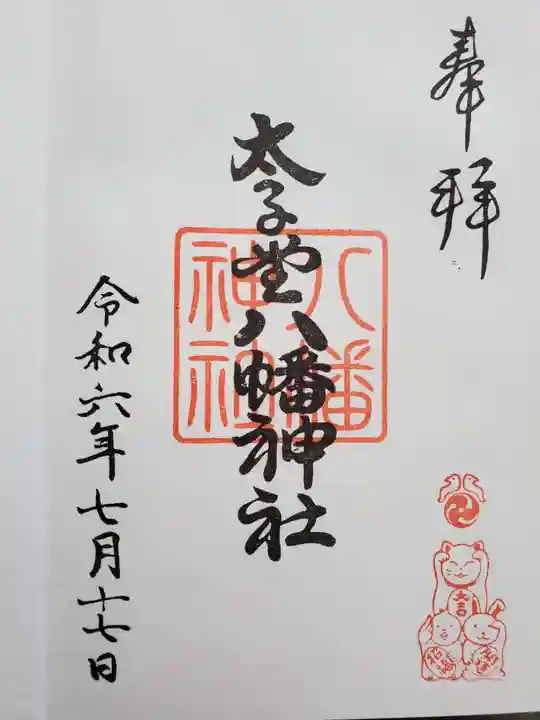 奉拝
太子堂八幡神社
八幡
神社
令和六年七月十七日
大吉